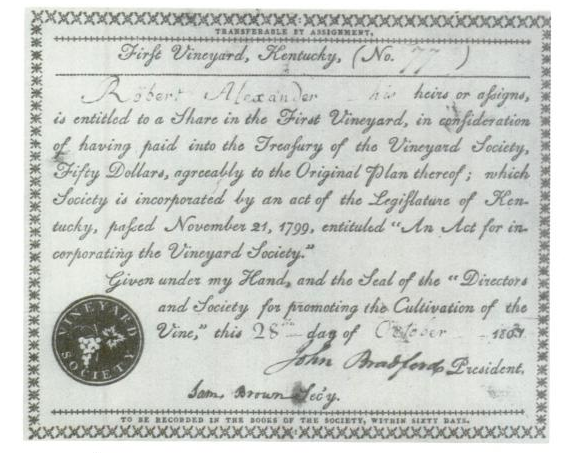 TRANSFERABLE BY ASSIGNMENT.
First Vineyard, Kentucky, (No. 77)
Robert Alexander his heirs or aſsigns,
is entitled to a Share in the First Vineyard, in conſideration
of having paid into the Treaſury of the Vineyard Society,
Fifty Dollars, agreeably to the Original Plan thereof; which
Society is incorporated by an act of the Legiſlature of Ken-
tucky, paſsed November 21, 1799, entituled “An Act for in-
corporating the Vineyard Society.”
Given under my Hand, and the Seal of the “Directors
and Society for promoting the Cultivation of the
Vine,” this 28 day of October
John Bradford President.
Sam. Brown Sec'y.
VINEYARD SOCIETY
TO BE RECORDED IN THE BOOKS OF THE SOCIETY, WITHIN SIXTY DAYS.